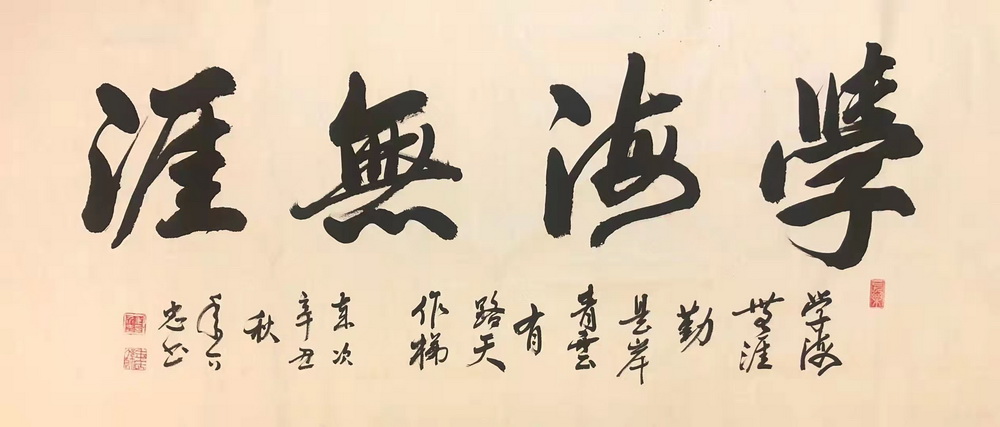 學海無涯
学海
無涯
勤
是岸
青雲
有
路天
作梯
歲次
辛丑
秋
忠书